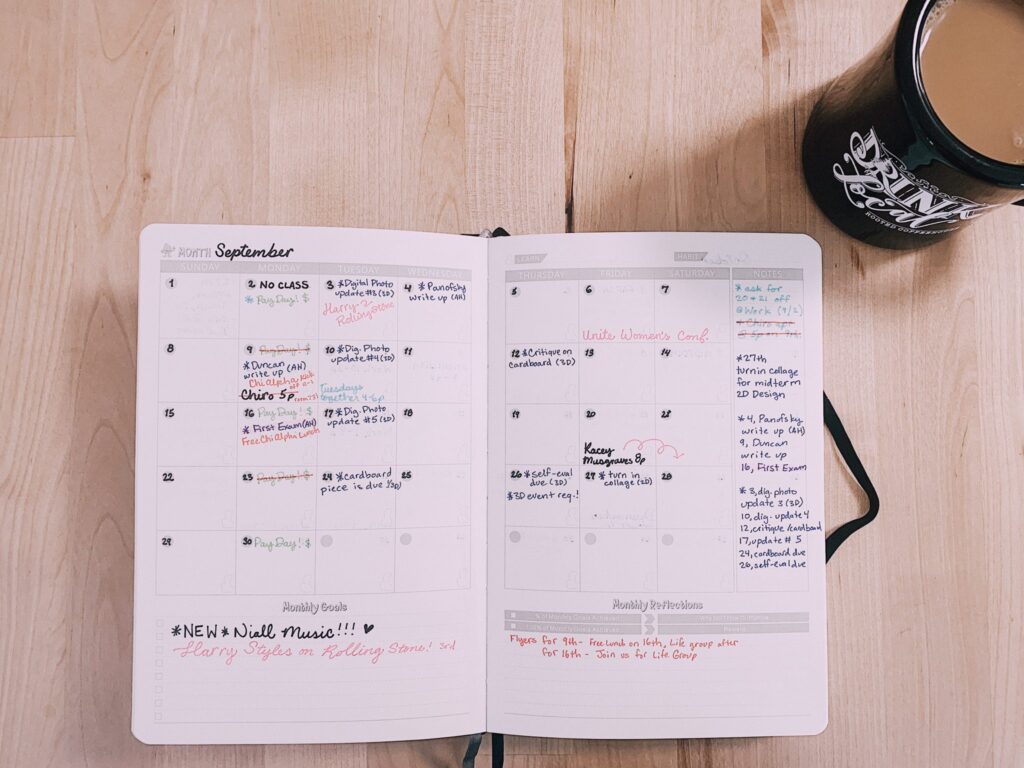 MONTH September
SUNDAY
MONDAY
TUESDAY
WEDNESDAY
1
2 NO CLASS
* Pay Day! $
3 *Digital Photo
update #3 (3D)
Harry-2-
Rolling Stone
4 * Panofsky
write up (AH)
8
9 Pay Day! $
*Duncan
write up (AH)
Chi Alpha Kick
off
Chiro 5p
10 *Dig. Photo
update #4 (3D)
Tuesdays
together 4-6p
11
15
16 Pay Day! $
* First Exam (AH)
Free Chi Alpha Lunch
17 *Dig. Photo
update #5 (3D)
18
22
23 Pay Day! $
24 *cardboard
piece is due! (3D)
25
29
30 Pay Day! $
Monthly Goals
*NEW* Niall Music!!! ♥
Harry Styles on Rolling Stone! 3rd
LEARN
HABIT
THURSDAY
FRIDAY
SATURDAY
NOTES
5
6
7
Unite Women's Conf.
12 *Critique on
cardboard (3D)
13
14
19
20
21
Kacey
Musgraves 8p
26 *self-eval
due (3D)
*3D event req.!
27 * turn in
collage (2D)
28
*ask for
20 & 21 off
@work (9/2)
* Chiro apt
@ 5p on 9th
*27th
turn in collage
for midterm
2D Design
*4, Panofsky
write up (AH)
9, Duncan
write up
16, First Exam
*3, dig. photo
update 3 (3D)
10, dig. update 4
12, critique/cardboard
17, update #5
24, cardboard due
26, self-eval due
Monthly Reflections
Flyers for 9th - Free Lunch on 16th, Life group after
for 16th - Join us for Life Group
DRINK
Local
ROOTED COFFEEHOUSE